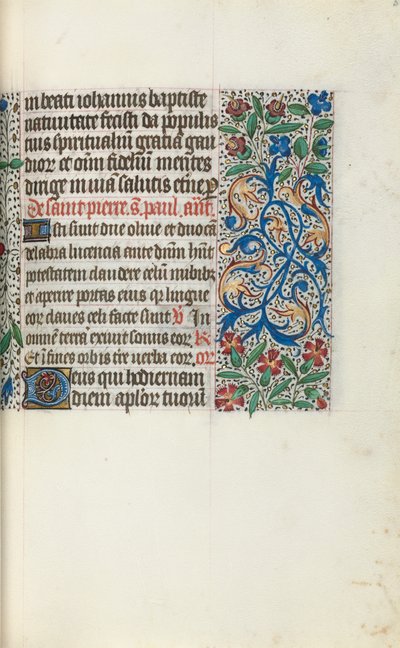 in beati iohannis baptiste
nativitate fecisti da populis
tuis spiritualiu gratia gau
dior et oim fideliu mentes
dirige in via salutis etne p
De saint pierre s. paul ant
Isti sunt due olive et duo ca
delabra lucencia ante dnm hnt
potestatem claudere celu nubibz
et aperire portas eius qr lingue
eor claves celi facte sunt V In
omne terra exivit sonus eor R
Et i fines orbis tre verba eor or
Deus qui hodiernam
diem aplor tuoru